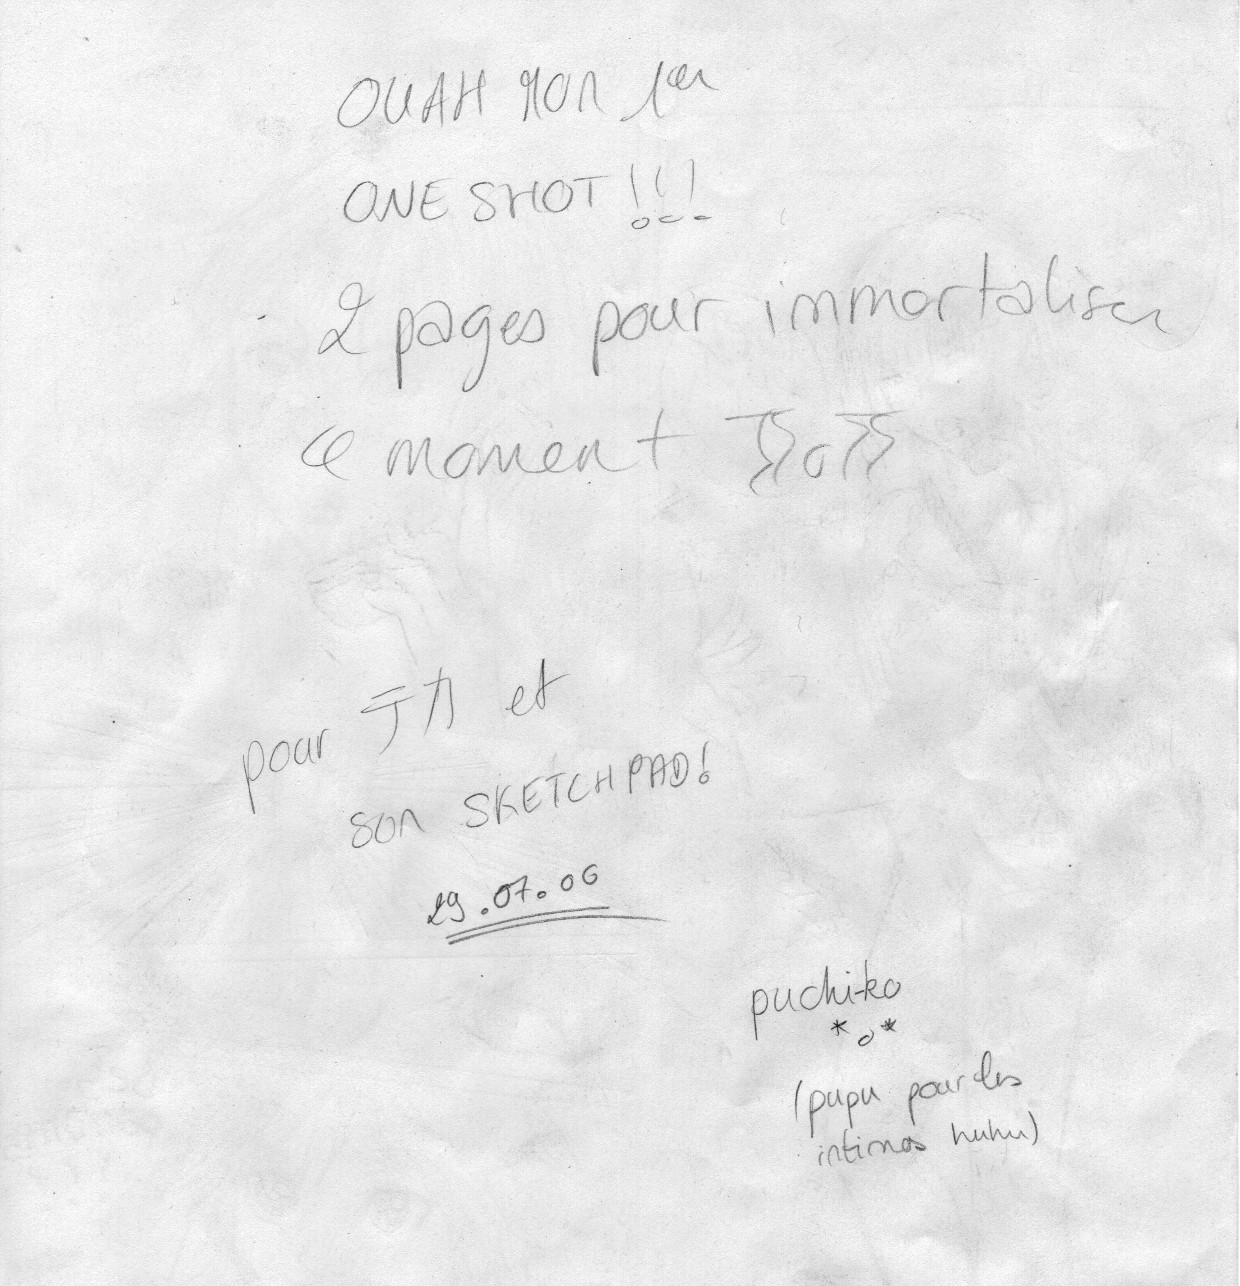 OUAH MON 1er
ONE SHOT !!!
2 pages pour immortaliser
ce moment ToT
pour テカ et
son SKETCHPAD!
29.07.06
puchi-ko
*o*
(pupu pour les
intimes huhu)